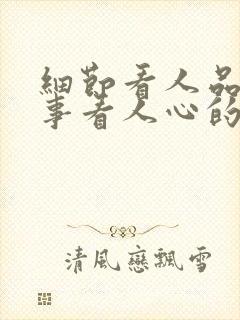 細節看人品
事看人心的
清風戀飄雪